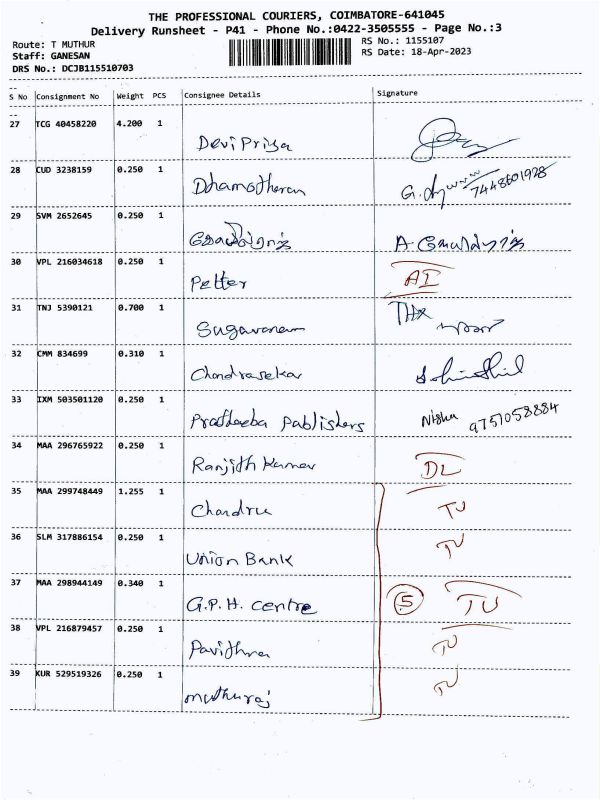 THE PROFESSIONAL COURIERS, COIMBATORE-641045
Delivery Runsheet - P41 - Phone No.:0422-3505555 - Page No.:3
Route: T MUTHUR RS No.: 1155107
Staff: GANESAN RS Date: 18-Apr-2023
DRS No.: DCJB115510703
S No Consignment No Weight PCS Consignee Details Signature
27 TCG 40458220 4.200 1 Devi Priya
28 CUD 3238159 0.250 1 Dhamotharan 7448601928
29 SVM 2652645 0.250 1
30 VPL 216034618 0.250 1 Petter AI
31 TNJ 5390121 0.700 1 Sugavanam
32 CMM 834699 0.310 1 Chandrasekar
33 IXM 503501120 0.250 1 Pratheeba Pablishers Nisha 9751058884
34 MAA 296765922 0.250 1 Ranjith Kumar DL
35 MAA 299748449 1.255 1 Chandru TU
36 SLM 317886154 0.250 1 Union Bank TU
37 MAA 298944149 0.340 1 G.P.H. centre 5 TU
38 VPL 216879457 0.250 1 Pavithra TU
39 KUR 529519326 0.250 1 muthuraj TU